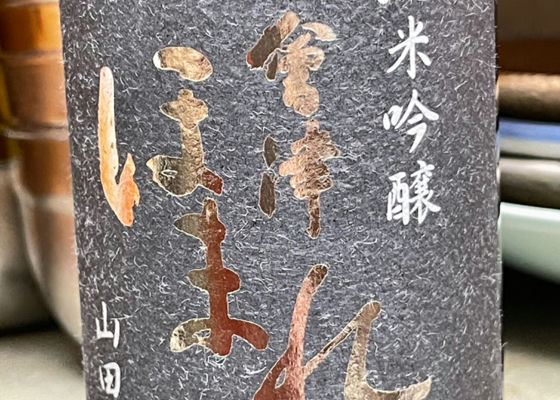 米吟醸
會津
ほまれ
山田